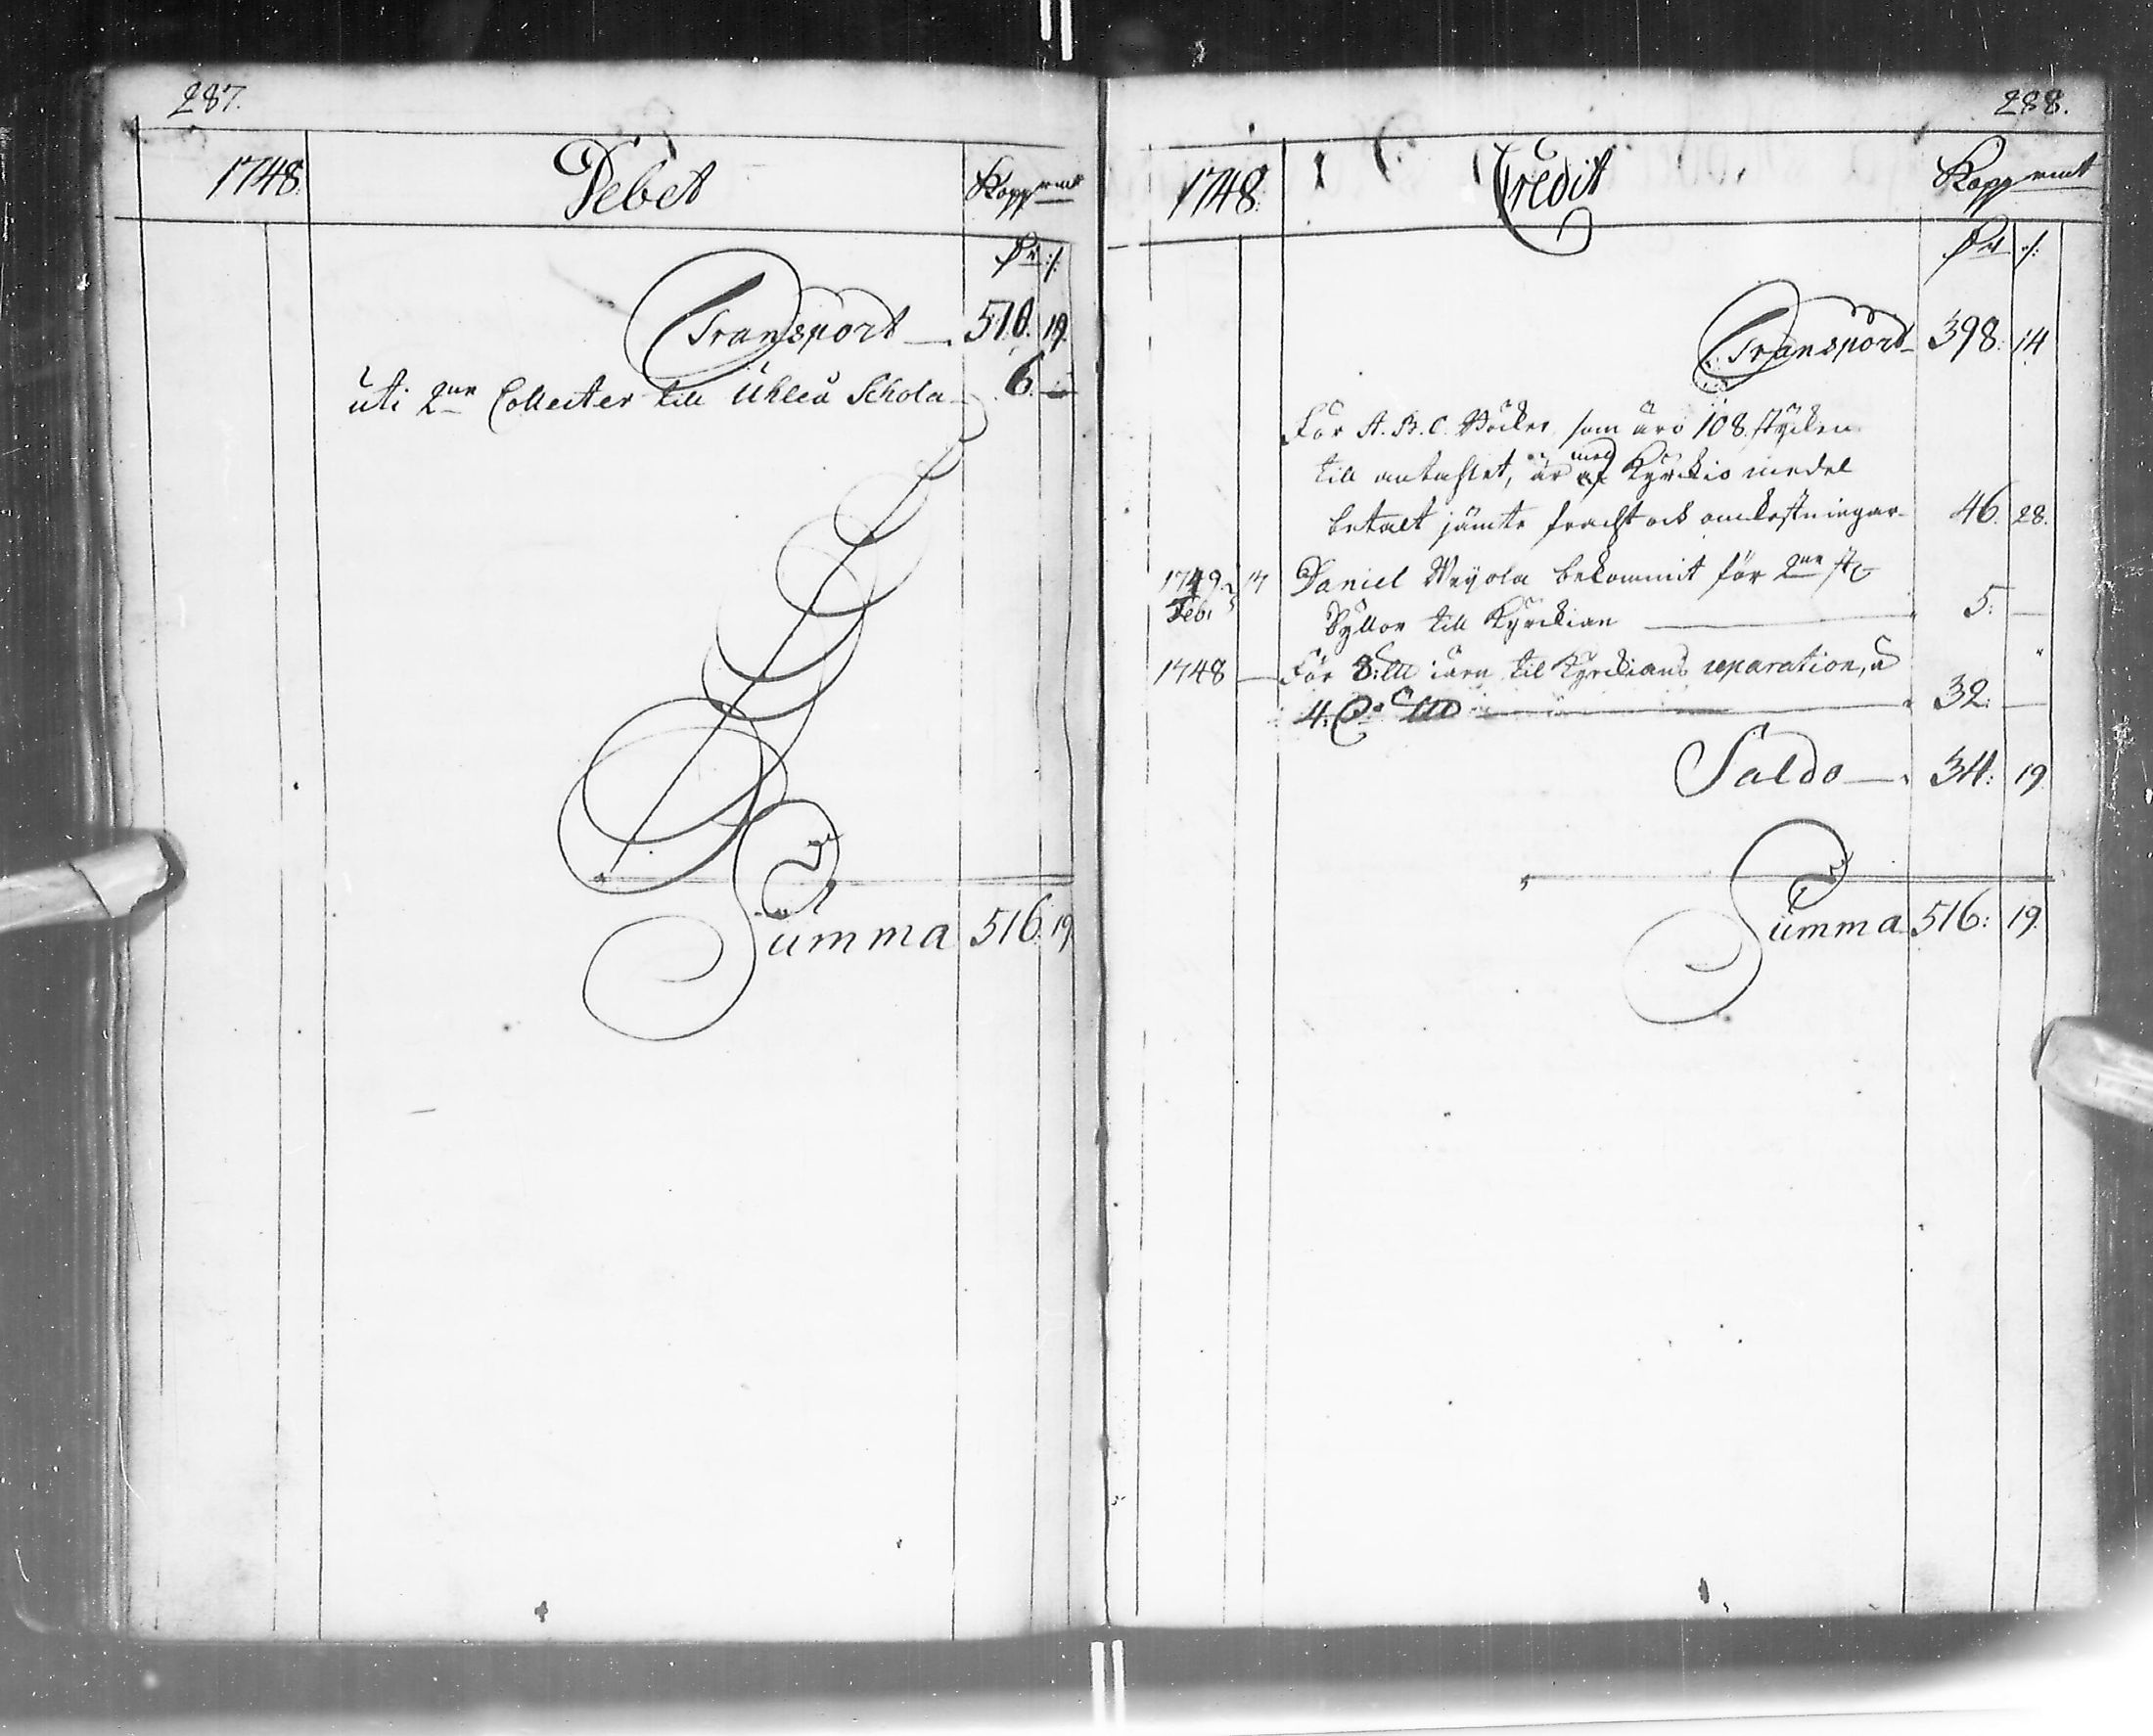 287.
1748.
Debet
Kopp mt
Dr ./.
Transport 510. 19.
uti 2ne Collecter till Uhleå Schola 6. —
Summa 516. 19.
288.
1748.
Credit
Kopp mt
Dr ./.
Transport 398. 14
För A. B. C. Böcker, som äro 108. stycken
till antahlet, är med Kyrckio medel
betalt jämte fracht och omkostningar 46. 28.
1749. Feb: 14 Daniel bekommit för 2ne st.
Syllor till Kyrckian 5. —
1748 — För 8: järn til Kyrckians reparation, à
4. 32. —
Saldo 34. 19
Summa 516: 19.